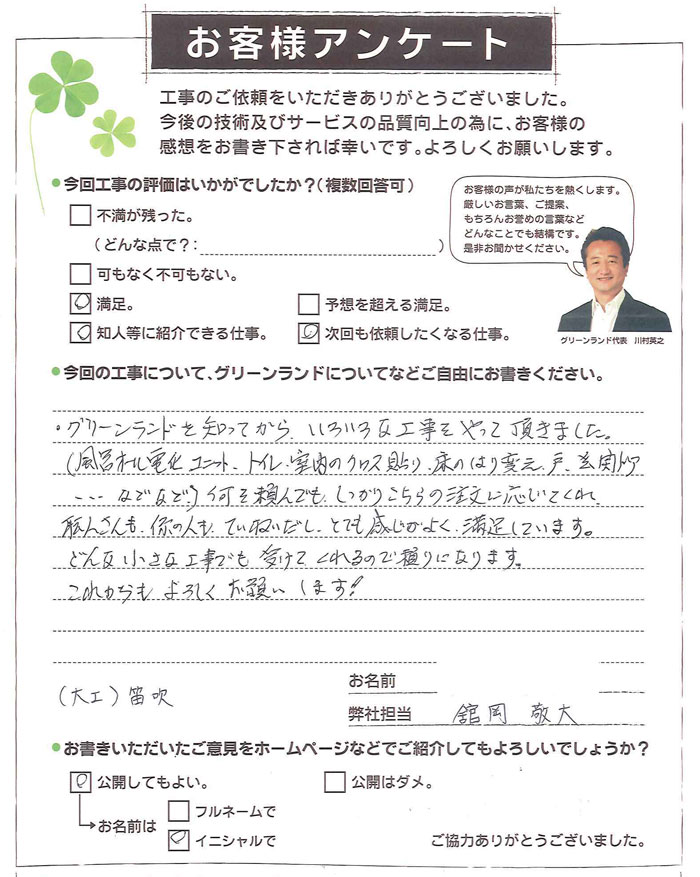 お客様アンケート
工事のご依頼をいただきありがとうございました。
今後の技術及びサービスの品質向上の為に、お客様の
感想をお書き下されば幸いです。よろしくお願いします。
●今回工事の評価はいかがでしたか？（複数回答可）
不満が残った。
（どんな点で？： ）
可もなく不可もない。
満足。
予想を超える満足。
知人等に紹介できる仕事。
次回も依頼したくなる仕事。
お客様の声が私たちを熱くします。
厳しいお言葉、ご提案、
もちろんお誉めの言葉など
どんなことでも結構です。
是非お聞かせください。
グリーンランド代表 川村英之
●今回の工事について、グリーンランドについてなどご自由にお書きください。
・グリーンランドを知ってから、いろいろな工事をやって頂きました。
（風呂オール電化、ユニット、トイレ・室内のクロス貼り、床のはり変え、戸、玄関ドア
…などなど）何を頼んでも、しっかりこちらの注文に応じてくれ、
職人さんも、係の人も、ていねいだし、とても感じがよく、満足しています。
どんな小さな工事でも受けてくれるので頼りになります。
これからもよろしくお願いします！
（大工）笛吹
お名前
弊社担当 舘岡 敬大
●お書きいただいたご意見をホームページなどでご紹介してもよろしいでしょうか？
公開してもよい。
公開はダメ。
お名前は
フルネームで
イニシャルで
ご協力ありがとうございました。